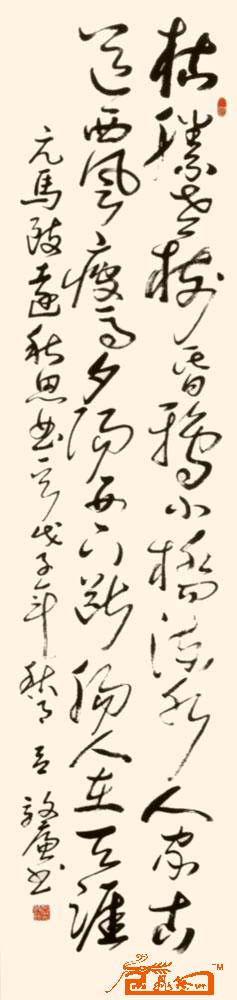 枯藤老树昏鸦小桥流水人家古
道西风瘦马夕阳西下断肠人在天涯
元馬致遠秋思曲一首戊子年秋月